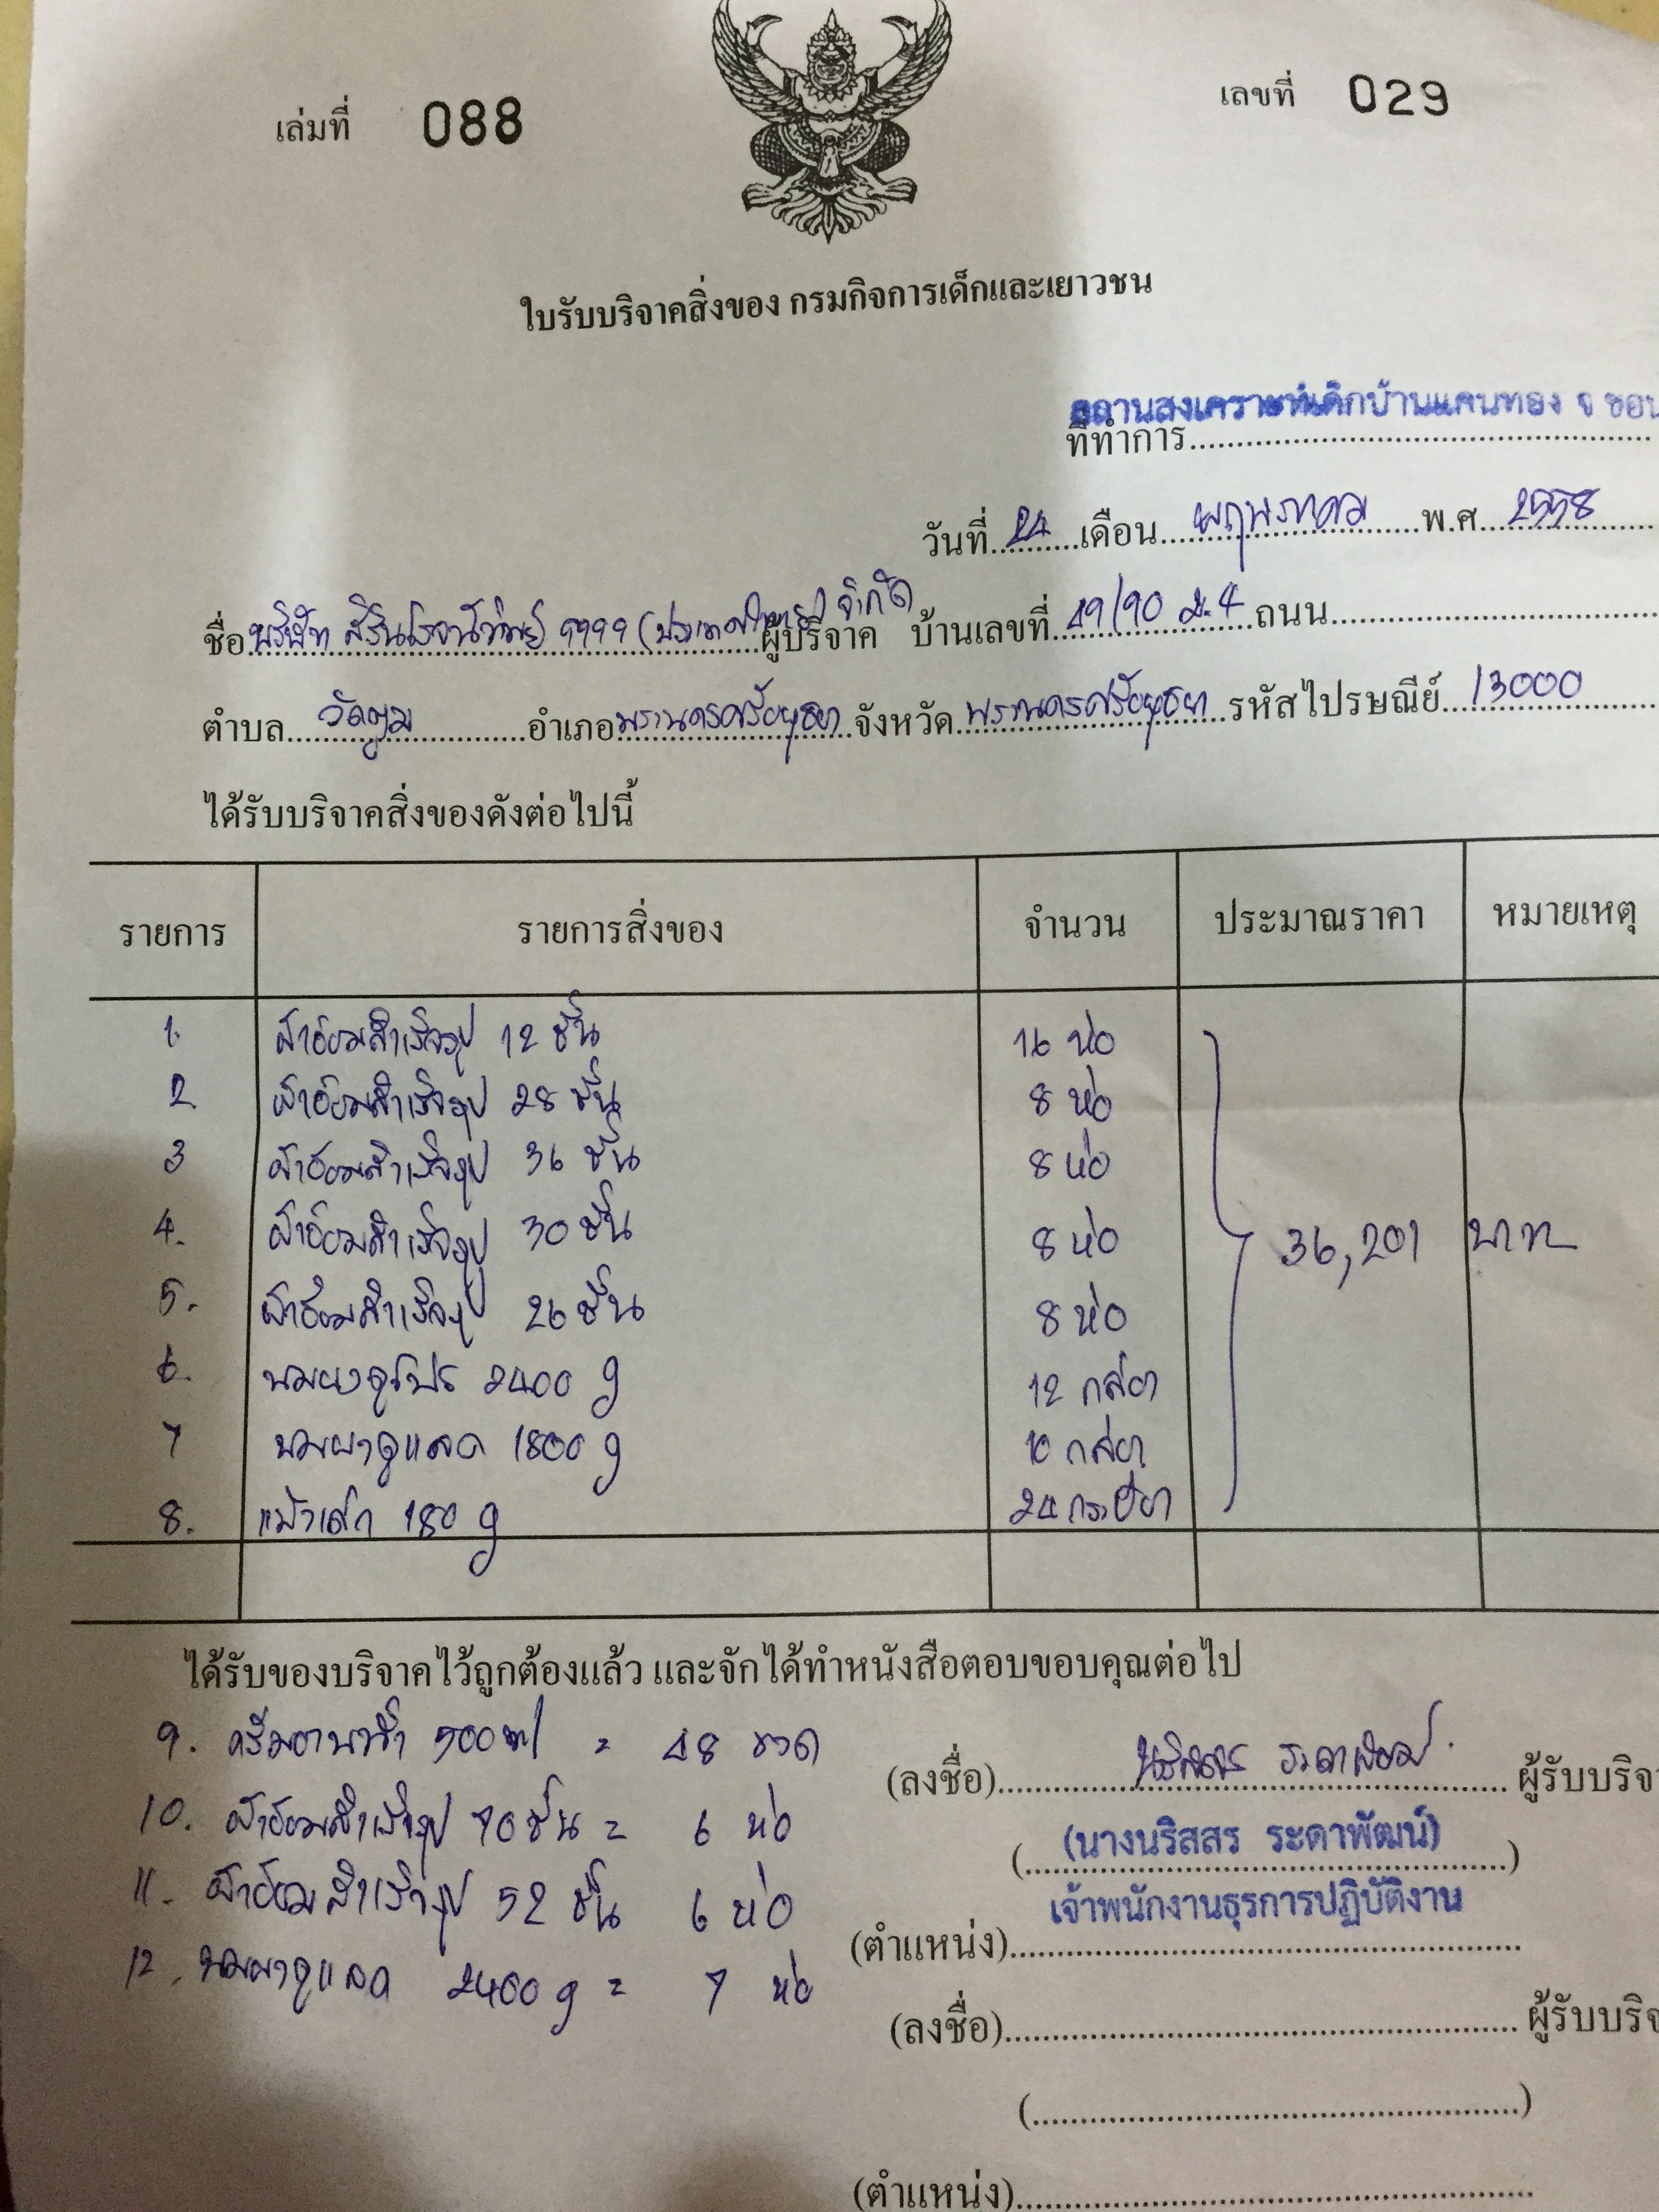 เล่มที่ 088
เลขที่ 029
ใบรับบริจาคสิ่งของ กรมกิจการเด็กและเยาวชน
สถานสงเคราะห์เด็กบ้านแคนทอง จ ขอน
ที่ทำการ
วันที่ 24 เดือน พฤษภาคม พ.ศ. 2558
ชื่อ บริษัท สิรินโรจน์ทิพย์ 9999 (ประเทศไทย) จำกัด ผู้บริจาค บ้านเลขที่ 49/90 ม.4 ถนน
ตำบล วัดตูม อำเภอ พระนครศรีอยุธยา จังหวัด พระนครศรีอยุธยา รหัสไปรษณีย์ 13000
ได้รับบริจาคสิ่งของดังต่อไปนี้
รายการ รายการสิ่งของ จำนวน ประมาณราคา หมายเหตุ
1. ผ้าอ้อมสำเร็จรูป 12 ชิ้น 16 ห่อ
2 ผ้าอ้อมสำเร็จรูป 28 ชิ้น 8 ห่อ
3 ผ้าอ้อมสำเร็จรูป 36 ชิ้น 8 ห่อ
4. ผ้าอ้อมสำเร็จรูป 30 ชิ้น 8 ห่อ 36,201 บาท
5. ผ้าอ้อมสำเร็จรูป 26 ชิ้น 8 ห่อ
6. นมผงดูโปร 2400 g 12 กล่อง
7 นมผงดูแลค 1800 g 10 กล่อง
8. แป้งเด็ก 180 g 24 กระป๋อง
ได้รับของบริจาคไว้ถูกต้องแล้ว และจักได้ทำหนังสือตอบขอบคุณต่อไป
9. ครีมอาบน้ำ 500 ml = 48 ขวด
(ลงชื่อ) นริสสร ระดาพัฒน์ ผู้รับบริจา
(นางนริสสร ระดาพัฒน์)
10. ผ้าอ้อมสำเร็จรูป 70 ชิ้น = 6 ห่อ
(ตำแหน่ง) เจ้าพนักงานธุรการปฏิบัติงาน
11. ผ้าอ้อมสำเร็จรูป 52 ชิ้น 6 ห่อ
12. นมผงดูแลค 2400 g = 7 ห่อ
(ลงชื่อ) ผู้รับบริจ
(ตำแหน่ง)